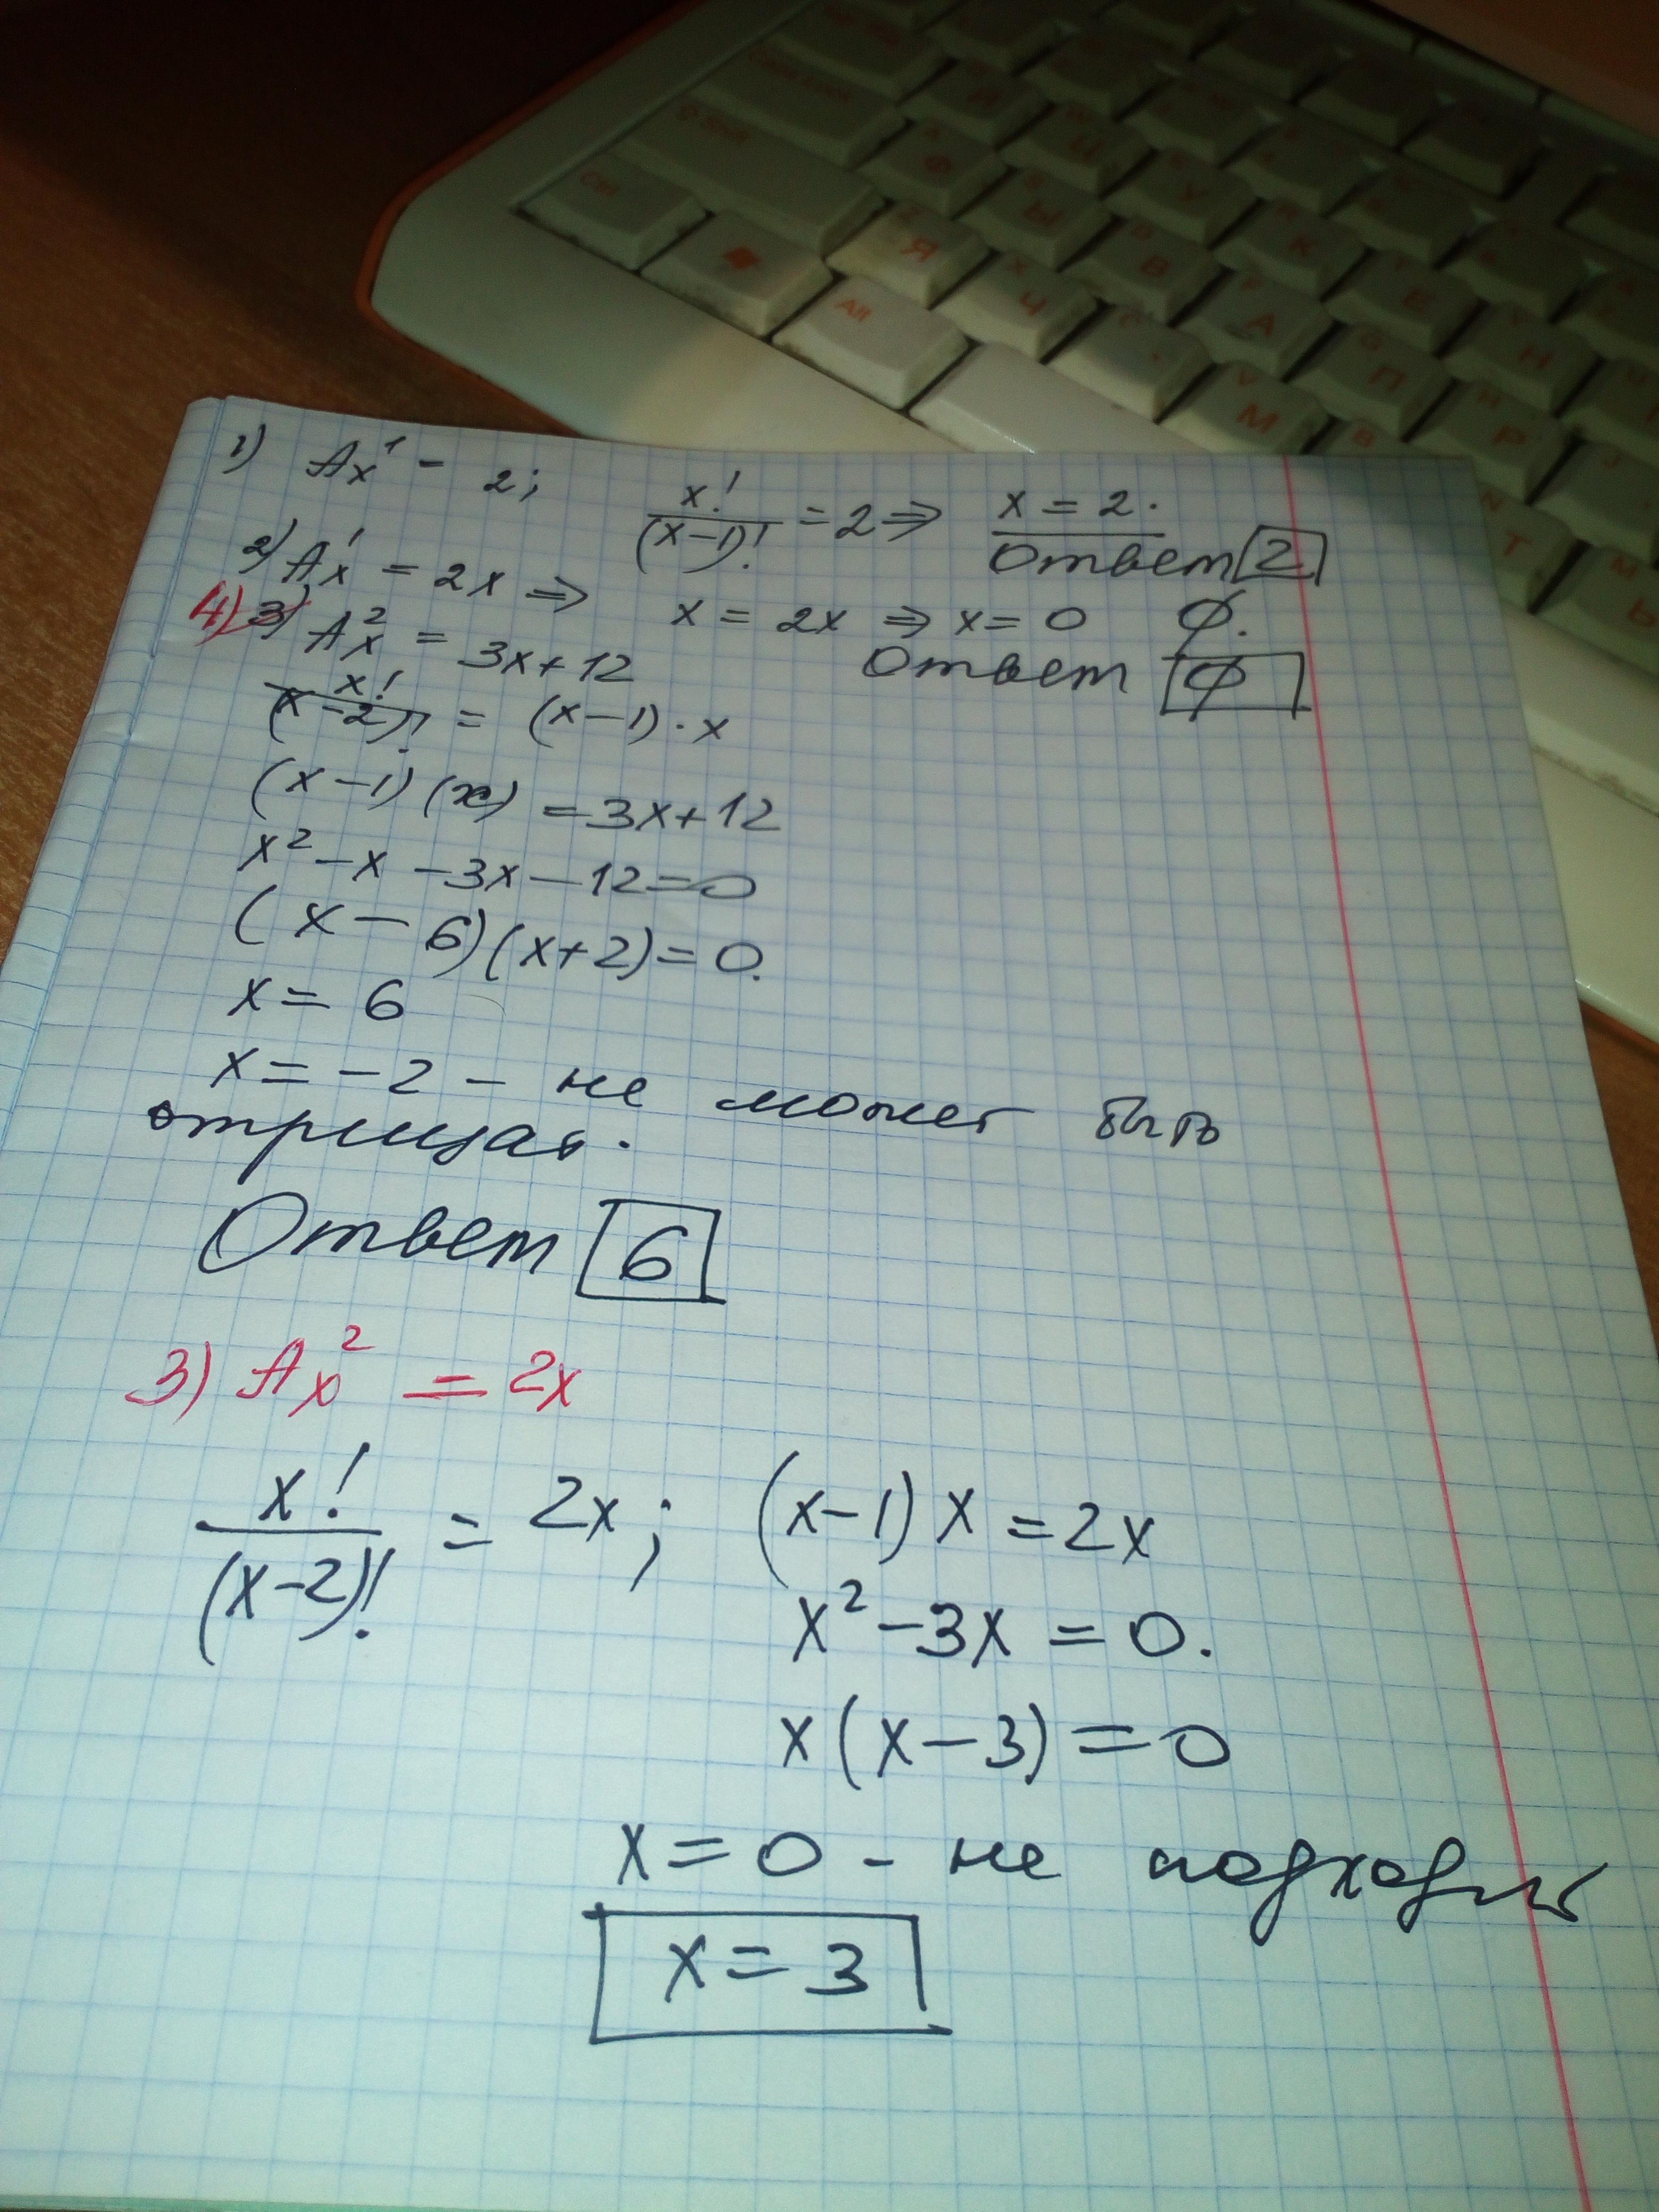 1) Aₓ¹ - 2; x!/(x-1)! = 2 ⇒ x = 2.
Ответ 2
2) Aₓ¹ = 2x ⇒ x = 2x ⇒ x = 0 ∅.
Ответ ∅
4) 3) Aₓ² = 3x+12
x!/(x-2)! = (x-1)·x
(x-1)(x) = 3x+12
x² - x - 3x - 12 = 0
(x - 6)(x+2) = 0.
x = 6
x = -2 - не может быть
отрицат.
Ответ 6
3) Aₓ² = 2x
x!/(x-2)! = 2x; (x-1)x = 2x
x² - 3x = 0.
x(x-3) = 0
x = 0 - не подходит
x = 3
Ctrl
Alt
Я
Ч
М
Ы
В
А
П
Р
У
К
Е
Н
Ц
Ф
Й